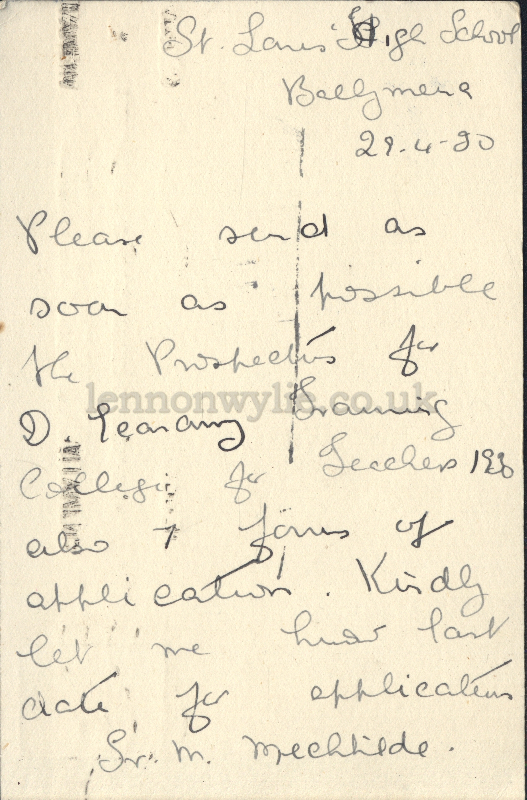 St. Louis' High School
Ballymena
29-4-30
Please send as
soon as possible
the Prospectus for
lennonwylie.co.uk
D Training
College for Teachers
also 7 forms of
application. Kindly
let me know last
date for application
Sr. M. Mechtilde.